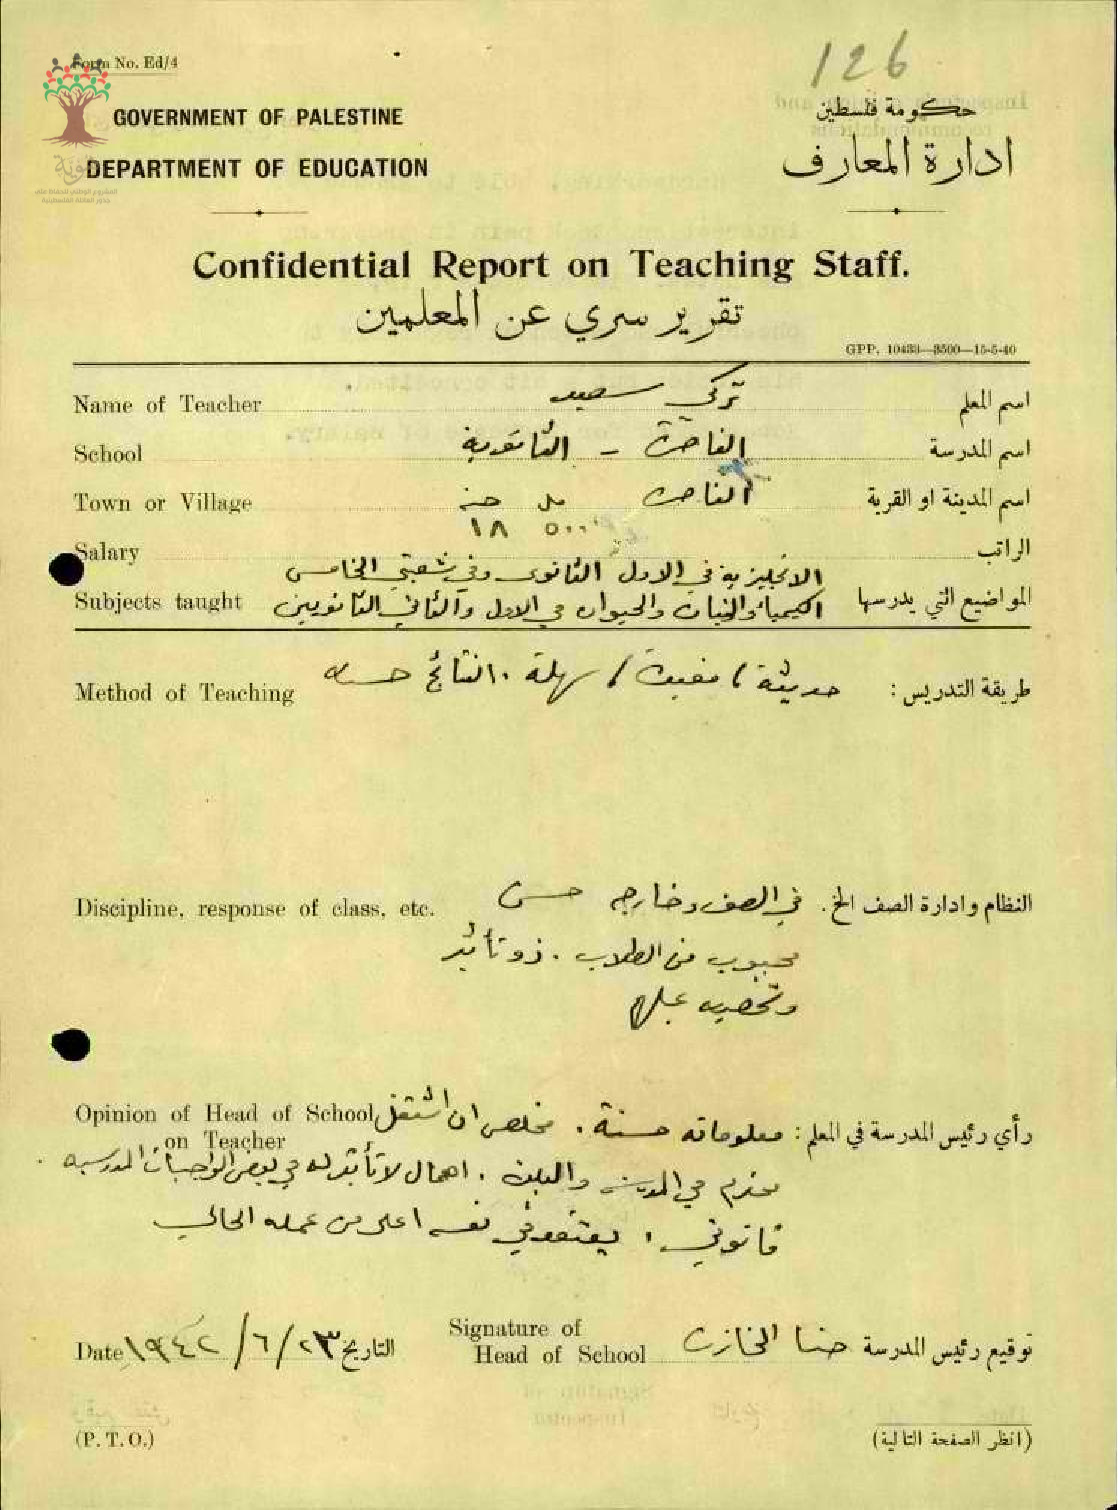 126
Form No. Ed/4
GOVERNMENT OF PALESTINE
حكومة فلسطين
DEPARTMENT OF EDUCATION
ادارة المعارف
Confidential Report on Teaching Staff.
تقرير سري عن المعلمين
GPP. 10433—3500—15-5-40
Name of Teacher تركي سعيد اسم المعلم
School الناصرة - الثانوية اسم المدرسة
Town or Village الناصرة اسم المدينة او القرية
مل جنيه
Salary ٥٠٠ ١٨ الراتب
الانجليزية في الاول الثانوي وفي شعبتي الخامس
Subjects taught الكيمياء والنبات والحيوان في الاول والثاني الثانويين المواضيع التي يدرسها
Method of Teaching حديثة / مفيدة / سهلة . النتائج حسنة طريقة التدريس :
Discipline, response of class, etc. في الصف وخارجه حسن النظام وادارة الصف الخ.
محبوب من الطلاب . ذو تأثير
Opinion of Head of School معلوماته حسنة . مخلص ان اشتغل رأي رئيس المدرسة في المعلم :
on Teacher
محترم في المدرسة والبلدة . اهمال لا تأثير له في بعض الواجبات المدرسية .
قانوني . يعتقد في نفسه اعلى من عمله الحالي
Date ٢٣/٦/١٩٤٢ التاريخ
Signature of
Head of School حنا الخازن توقيع رئيس المدرسة
(P. T. O.)
(انظر الصفحة التالية)